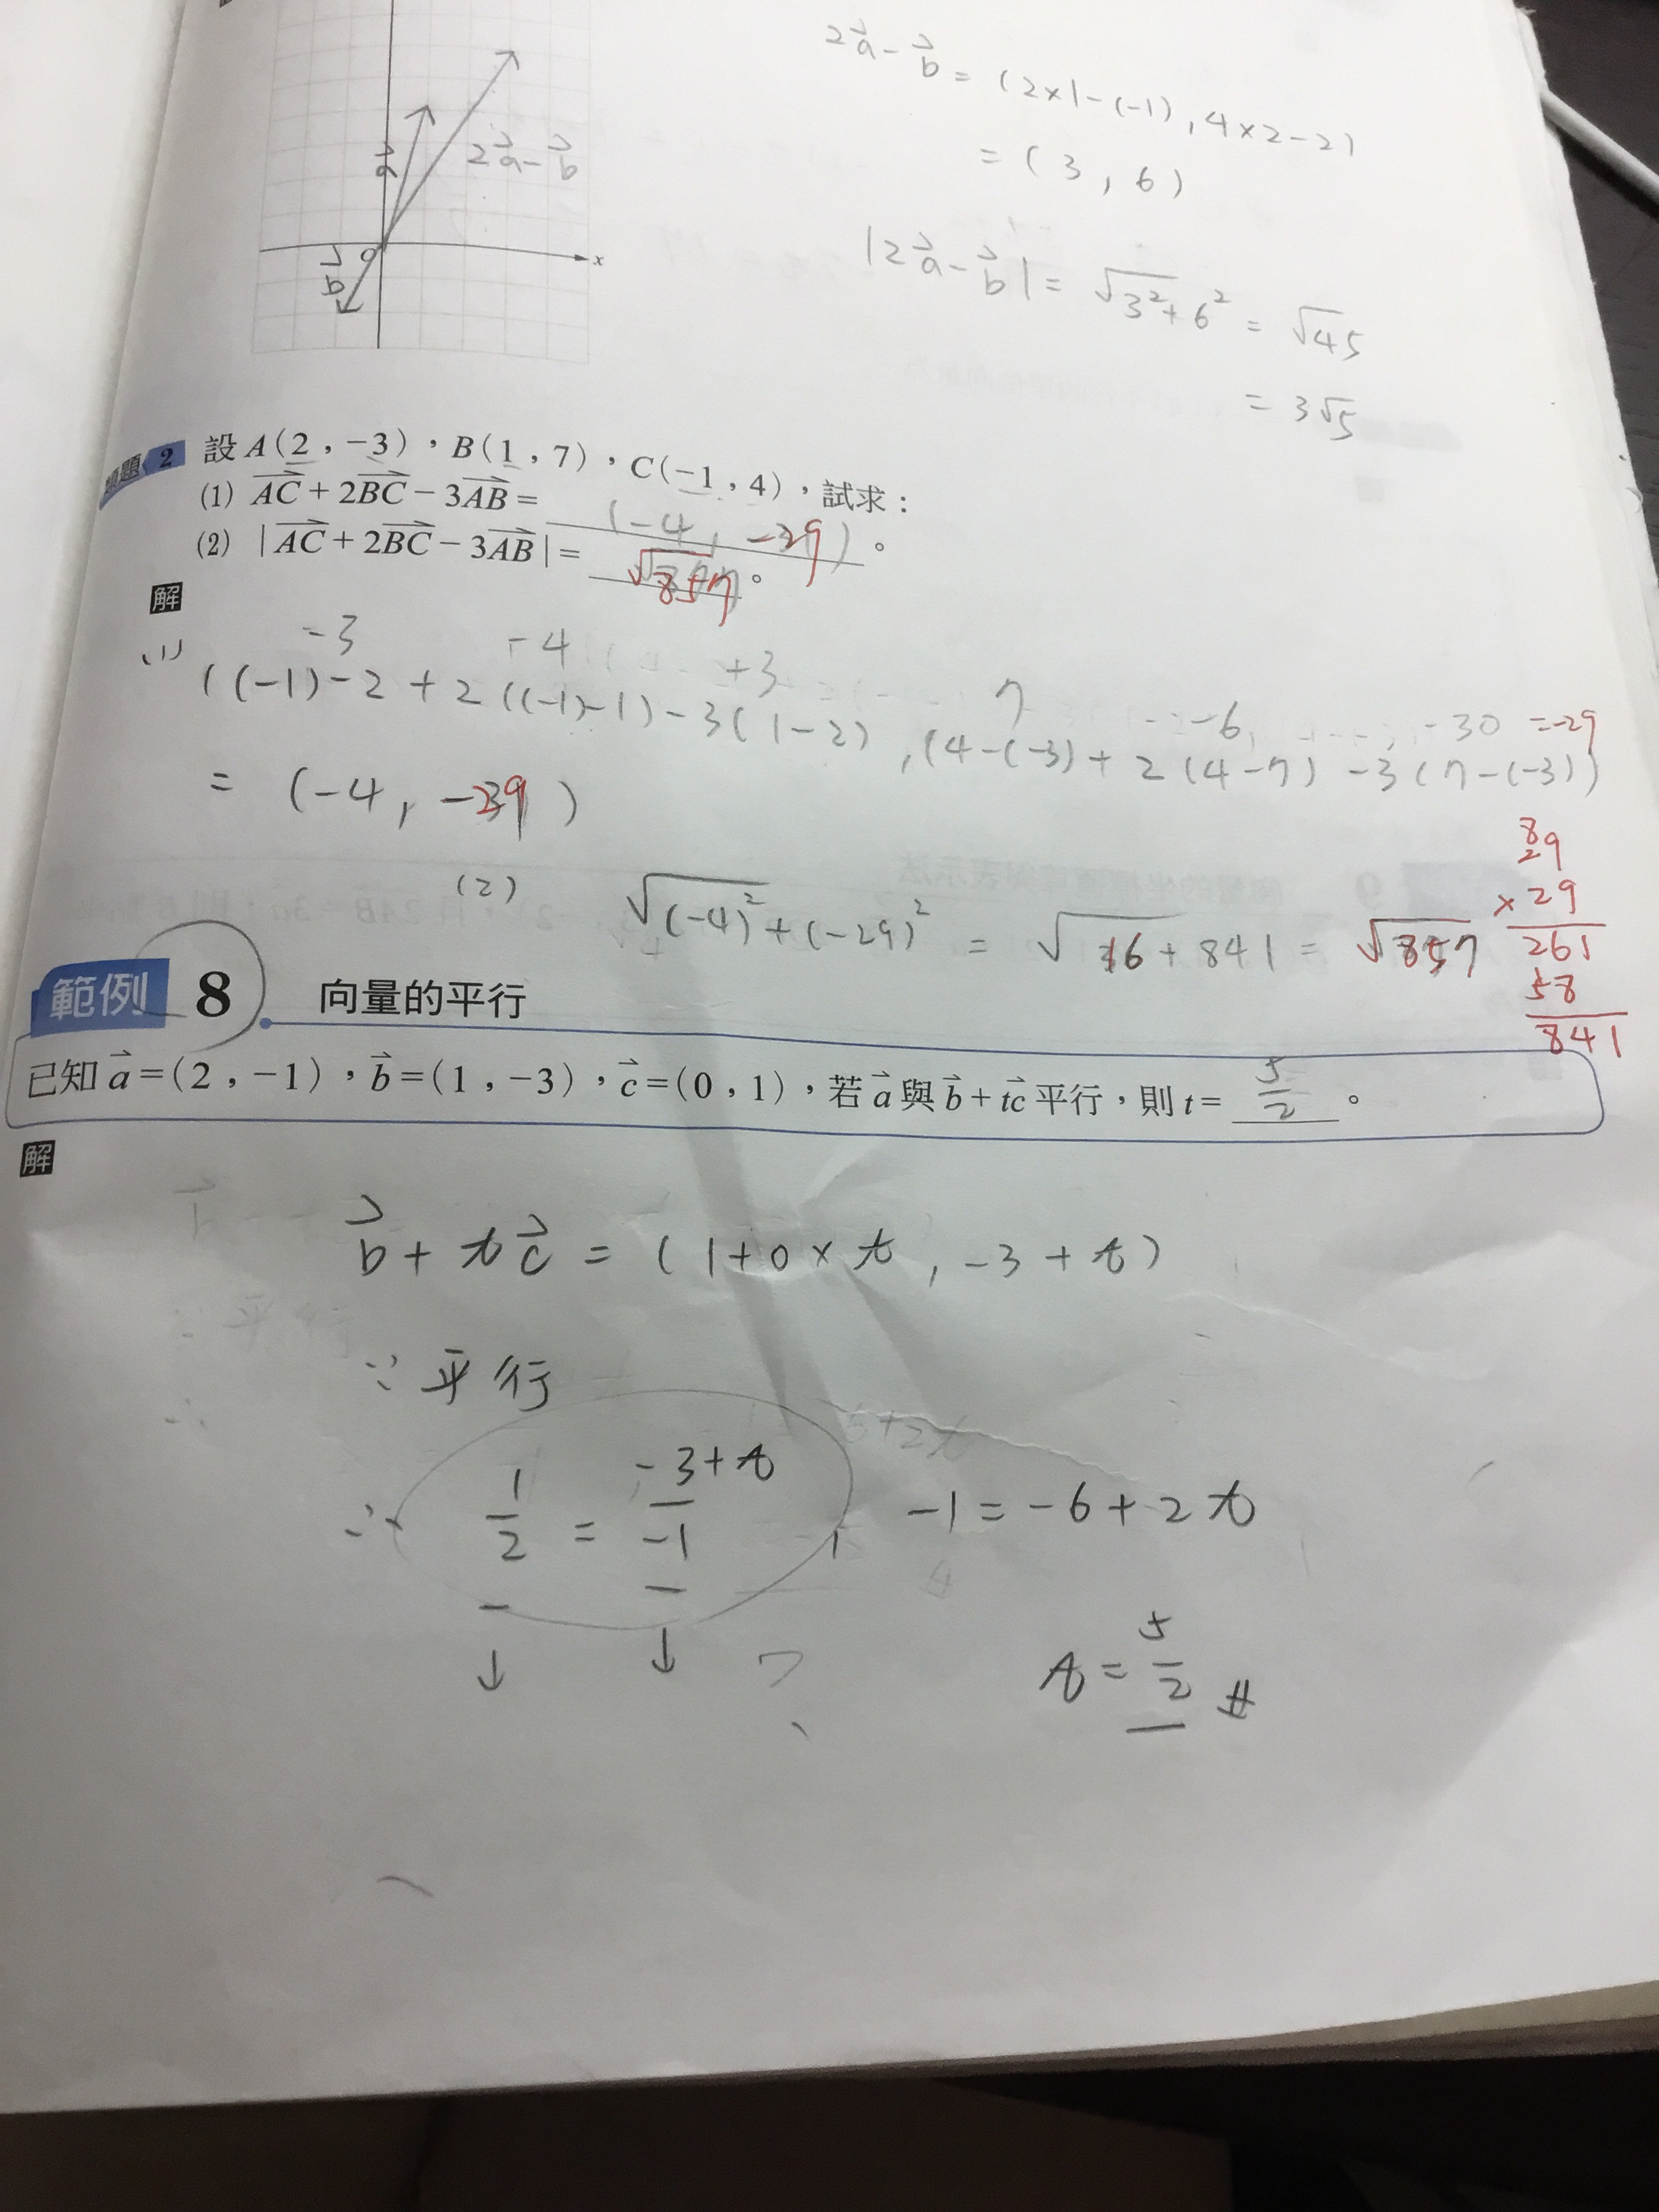 2a⃗-b⃗ = (2×1-(-1), 4×2-2)
= (3, 6)
|2a⃗-b⃗| = √3²+6² = √45
= 3√5
a⃗
2a⃗-b⃗
O
x
b⃗
題 2 設 A(2,-3),B(1,7),C(-1,4),試求:
(1) AC+2BC-3AB= (-4, -29)。
(2) |AC+2BC-3AB|= √857。
解
-3 -4 +3 7 -6 -30 =-29
(1) ((-1)-2+2((-1)-1)-3(1-2), (4-(-3)+2(4-7)-3(7-(-3))
= (-4, -29)
(2) √(-4)²+(-29)² = √16+841 = √857
8
29
×29
261
58
841
範例 8 向量的平行
已知 a⃗=(2,-1),b⃗=(1,-3),c⃗=(0,1),若 a⃗ 與 b⃗+tc⃗ 平行,則 t= 5/2。
解
b⃗+tc⃗ = (1+0×t, -3+t)
∵平行
∴ 1/2 = -3+t/-1, -1=-6+2t
↓ ↓
t=5/2 #